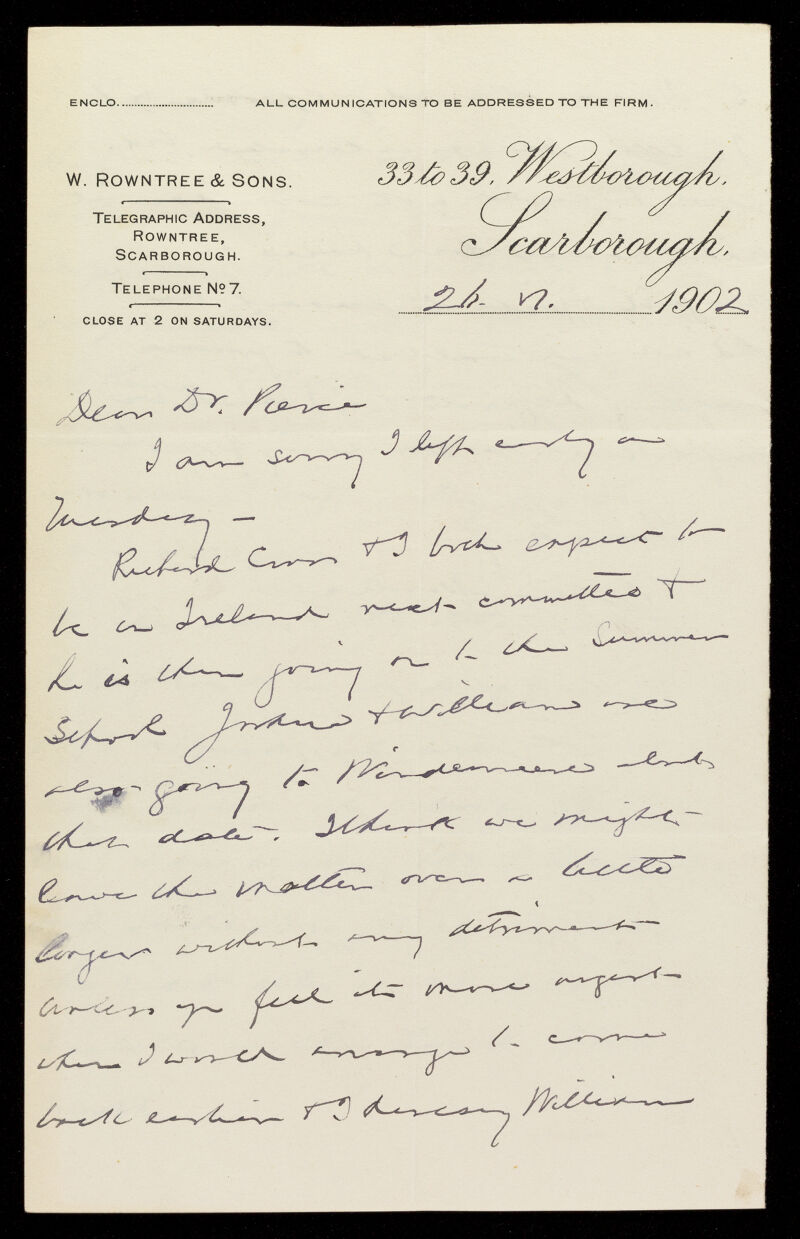 ENCLO.............................. ALL COMMUNICATIONS TO BE ADDRESSED TO THE FIRM.
W. ROWNTREE & SONS.
TELEGRAPHIC ADDRESS,
ROWNTREE,
SCARBOROUGH.
TELEPHONE No 7.
CLOSE AT 2 ON SATURDAYS.
33 to 39, Westborough,
Scarborough,
1902
Dear Dr. Pierce
I am sorry I left early on
Tuesday —
Richard Cross & I both expect to
be in Ireland next committee &
he is then going on to the Summer
School Joshua & William are
also going to Windermere about
that date. I think we might
leave the matter over a little
longer without any detriment
Unless you feel it more urgent
when I would arrange to come
back earlier & I daresay William